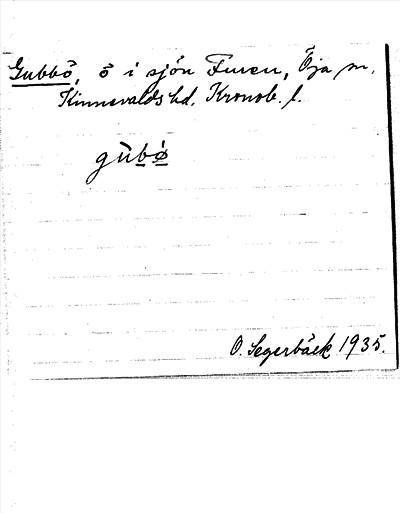 Gubbö, ö i sjön Furen, Öja sn,
Kinnevalds hd. Kronob. l.
gùbø̀
O. Segerbäck 1935.